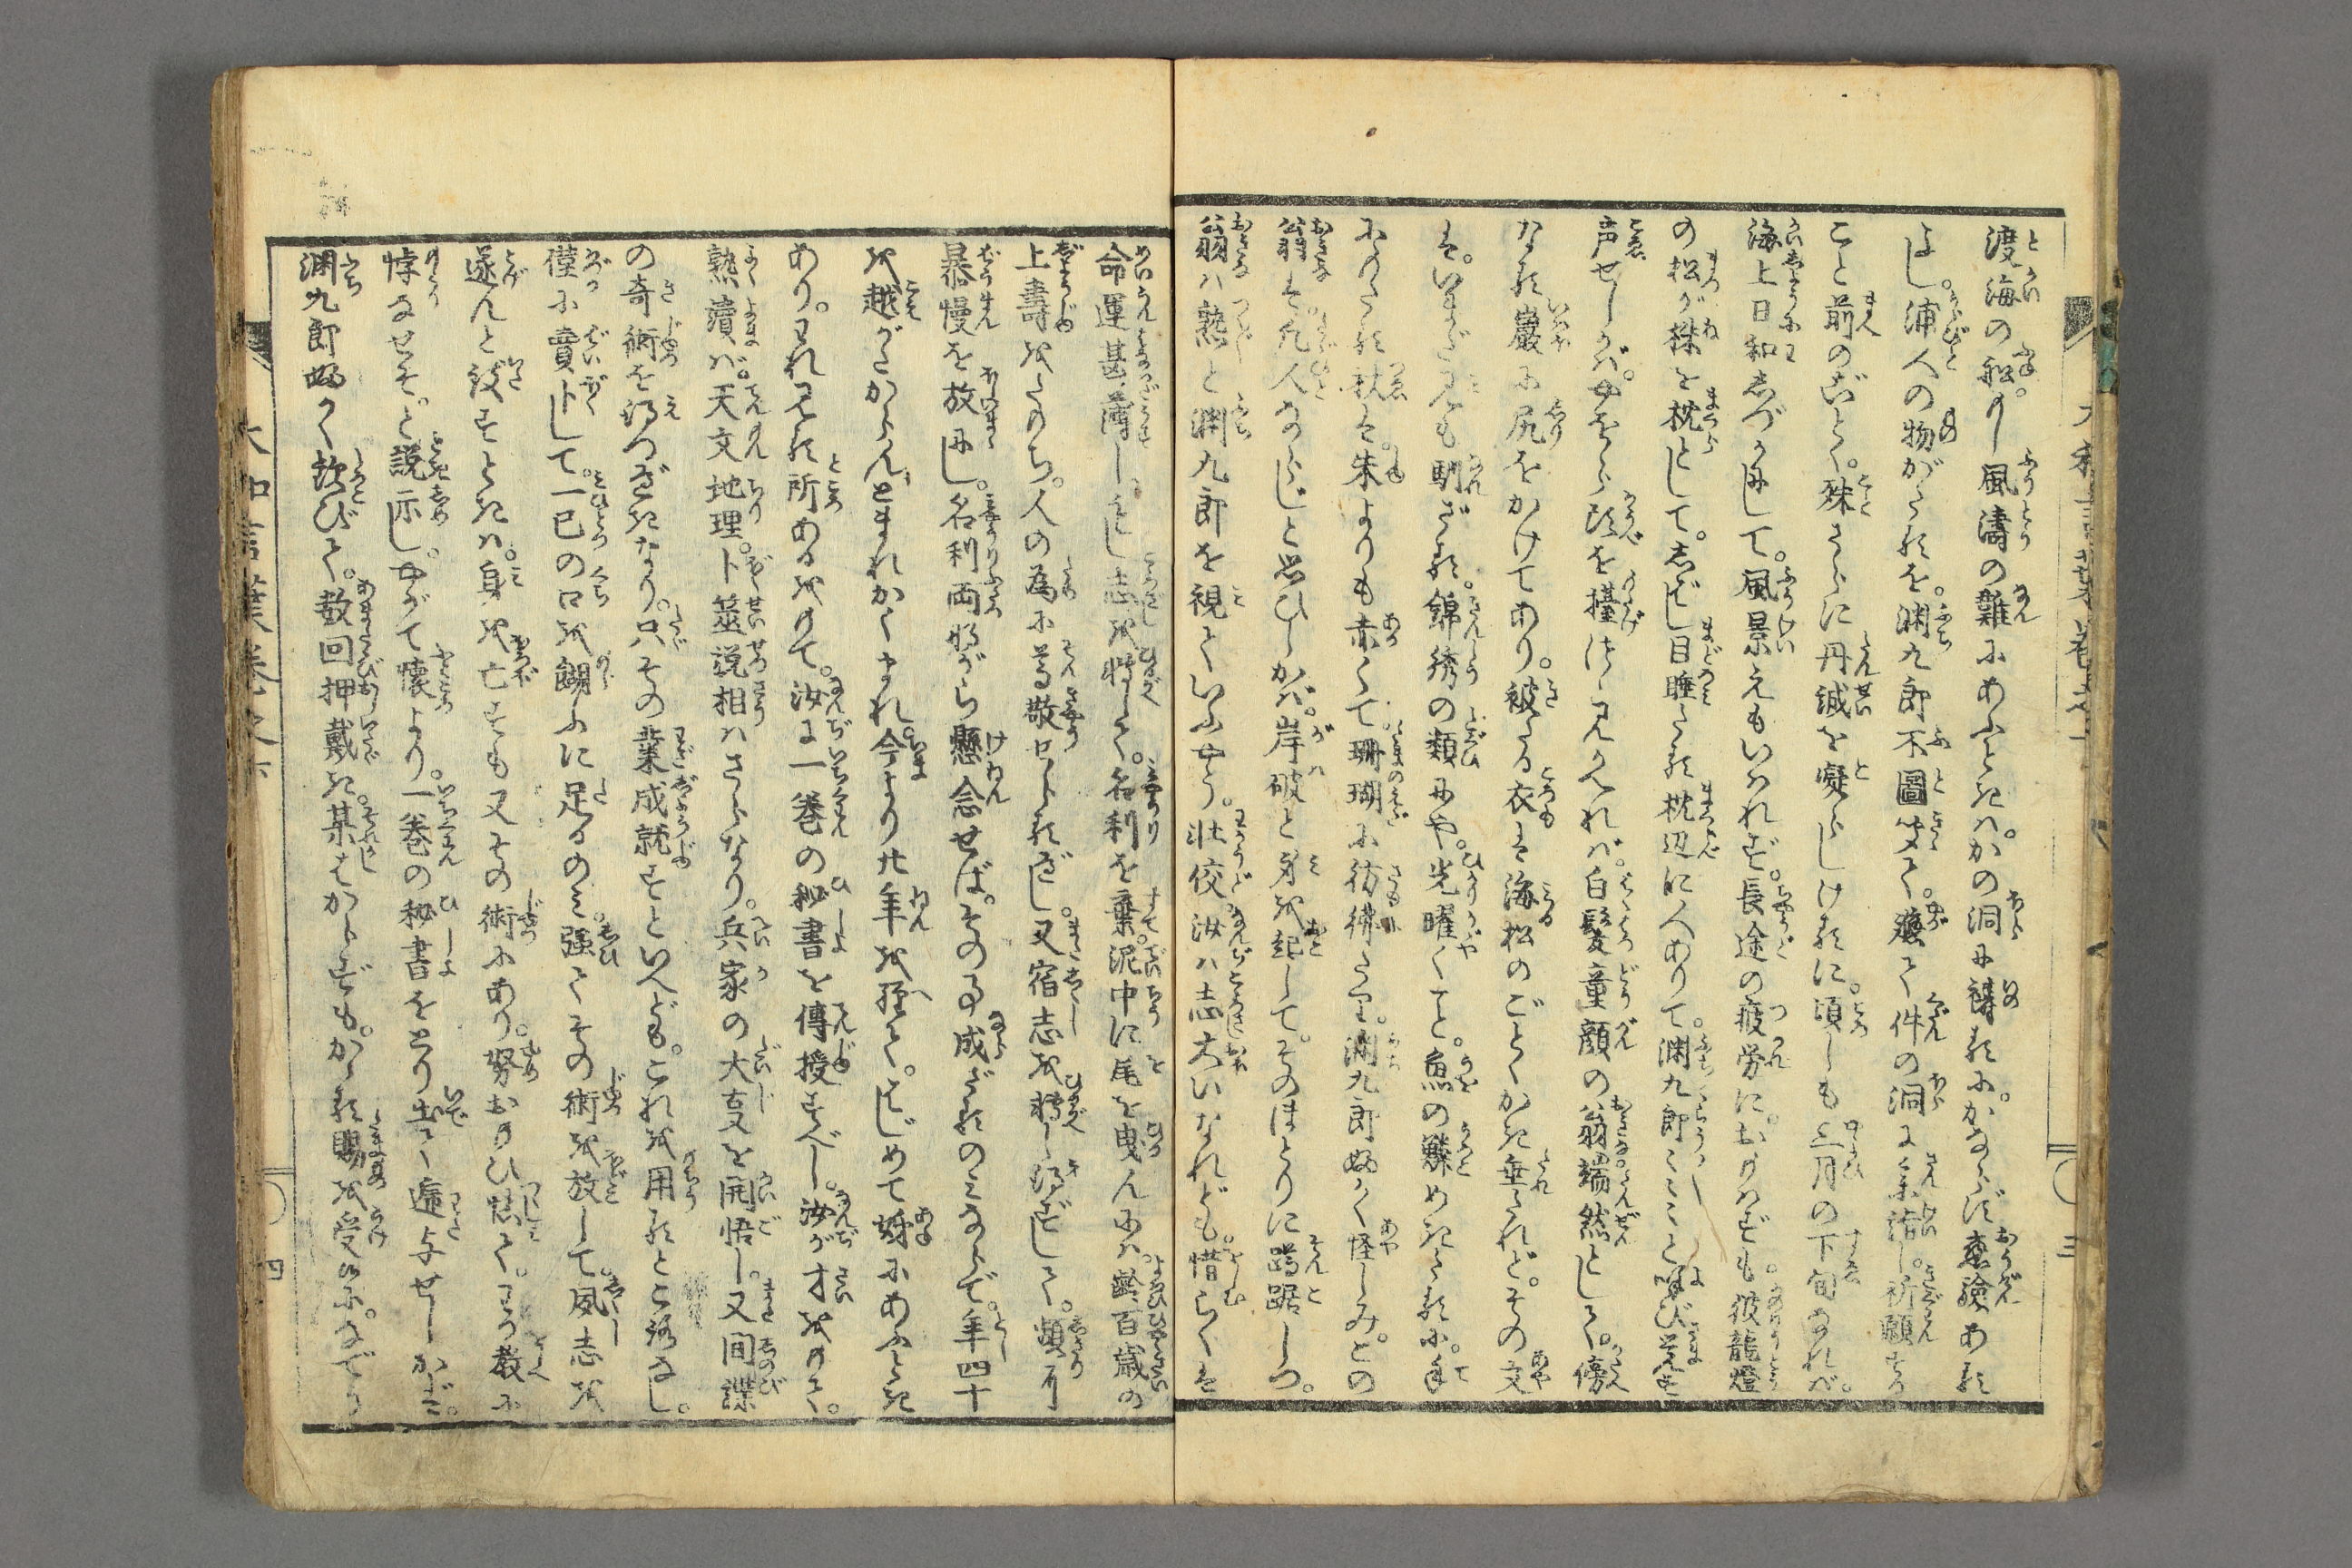 渡海の船。もし風濤の難にあふときハ。かの洞に祷るに。かならず應驗ある
よし。浦人の物がたるを。渊九郎不圖聞て。獲て件の洞に参詣し。祈願する
こと前のごとく。殊さらに丹誠を凝らしけるに。頃しも三月の下旬なれバ。
海上日和しづかにして。風景えもいはれず。長途の疲労に。おもはずも。彼龍燈
の松が株を枕として。しばし目睡たる枕辺に人ありて。渊九郎〻〻〻と喚び覚す
声せしかバ。やをら頭を擡げつゝ見かへれバ。白髪童顔の翁。端然として。傍
なる巌に尻をかけてあり。被たる衣は海松のごとくかき垂たれど。その文
は。いまだ見も馴ざる。錦綉の類にや。光曜くこと。魚の鱗めきたるに。手
にもたる杖は。朱よりも赤くて。珊瑚に彷彿たり。渊九郎如く怪しみ。この
翁は。凡人ならじと思ひしかバ。岸破と身を起して。そのほとりに蹲踞しつ。
翁ハ熟〻と渊九郎を視ていふやう。壮佼汝ハ志大いなれども。惜らくは
命運甚薄し。もし志を轉じて。名利を棄。泥中に尾を曳んにハ。齢百歳の
上壽をたもち。人の為に尊敬せらるべし。又宿志を轉じ得ずして。頻に
暴慢を放にし。名利両ながら懸念せば。その事成ざるのミならで。年四十
を越がたからん。とまれかくまれ。今より廾年を経て。はじめて妍にあふとき
あり。われ見る所あるをもて。汝に一巻の秘書を傳授すべし。汝が才をもて。
熟讀バ。天文地理。卜筮説相ハさらなり。兵家の大事を開悟し。又間諜
の奇術を得つべきなり。只その業成就すといへども。これを用るところなし。
僅に賣卜して。一己の口を餬ふに足るのミ。強てその術を放して。夙志を
遂んと欲するときハ。身を亡すも又その術にあり。努おもひ慎て。わが教に
悖なせそ。と説示し。やがて懐より。一巻の秘書をとり出て遞与せしかバ。
渊九郎如く歓びて。数回押戴き。某はからずも。かゝる賜を受るに。などか
大和言葉巻之一
三
四